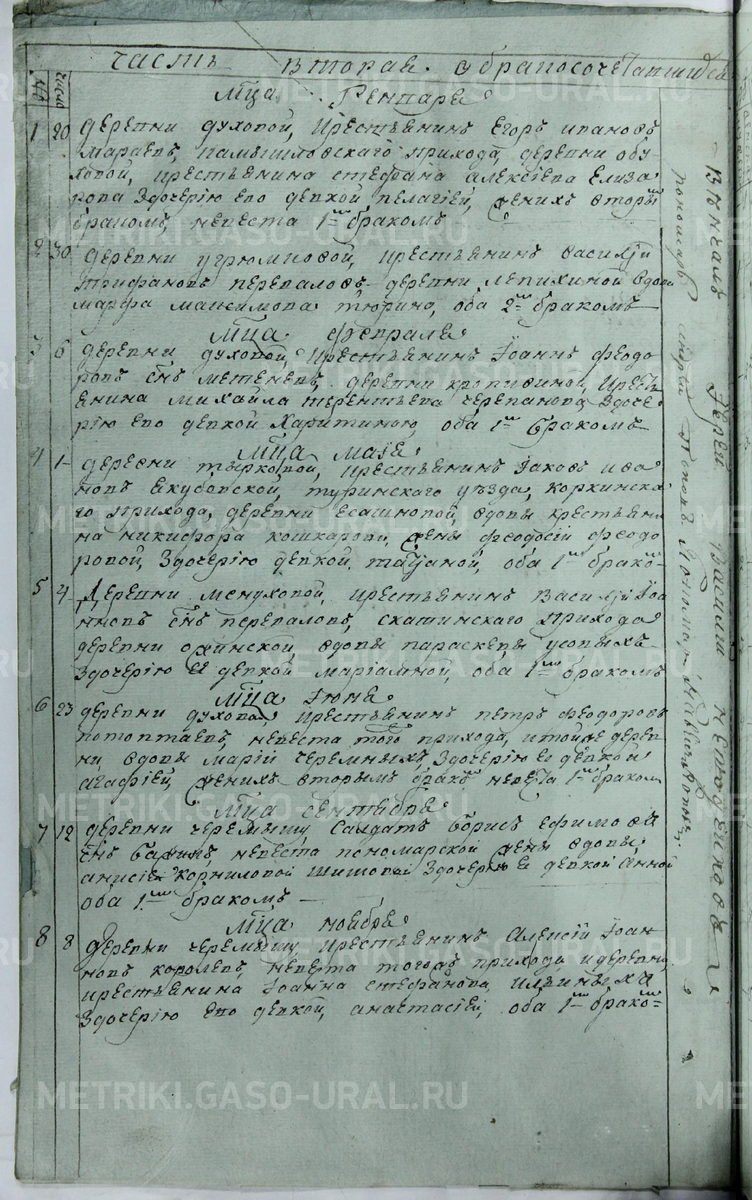 часть вторая о бракосочетавшихся
числа
Мца Генваря
1 20 деревни духовой, крестьянинъ Егоръ ивановъ
Мараевъ, камышловскаго прихода, деревни обу
ховой, крестьянина стефана алексіева Елиза
рова Здочерію его девкой пелагіей, женихъ вторы
бракомъ, невеста 1мъ бракомъ
2 30 деревни угрюмовой, крестьянинъ василій
трифановъ переваловъ деревни лепихиной вдова
марфа максимова тюрина, оба 2мъ бракомъ
Мца февраля
3 6 деревни духовой, крестьянинъ Іоаннъ феодо
ровъ снъ метеневъ, деревни кропивиной, крест
янина михайла терентьева черепанова, Здоче
рію его девкой Харитиною, оба 1мъ бракомъ
Мца маія
4 1 деревни тырковой, крестьянинъ Іаковъ ива
новъ Якубовской, туринскаго уезда, коркинска
го прихода, деревни есашновой, вдовы крестьяни
на никифора кошкарова, жены феодосіи феодо
ровой, Здочерію девкой татіаной, оба 1мъ брако
5 4 Деревни менуховой, крестьянинъ Василій Іоа
нновъ снъ переваловъ, скатинскаго прихода
деревни вдовы параскевы
Здочерію ея девкой маріамной, оба 1мъ бракомъ
Мца Іюня
6 23 деревни духовой крестьянинъ петръ феодоровъ
потоптаевъ, невеста того прихода, и тойже дерев
ни вдовы маріи черемныхъ, Здочерію ея девкой
агафіей, женихъ вторымъ бракомъ невеста 1мъ браком
Мца сентября
7 12 деревни черемышу Салдатъ борисъ ефимовъ
снъ невеста пономарской жены вдовы
анисіи корниловой шишовой Здочерію ея девкой Анной
оба 1мъ бракомъ
Мца ноября
8 8 деревни черемышу крестьянинъ Алексій Іоан
новъ королевъ, невеста тогожъ прихода и деревни
крестьянина Іоанна стефанова, ильиныхъ
Здочерію его девкой, анастасіей, оба 1мъ брако
Венчалъ Іерей Василій
пономарь андрей поповъ
METRIKI.GASO-URAL.RU